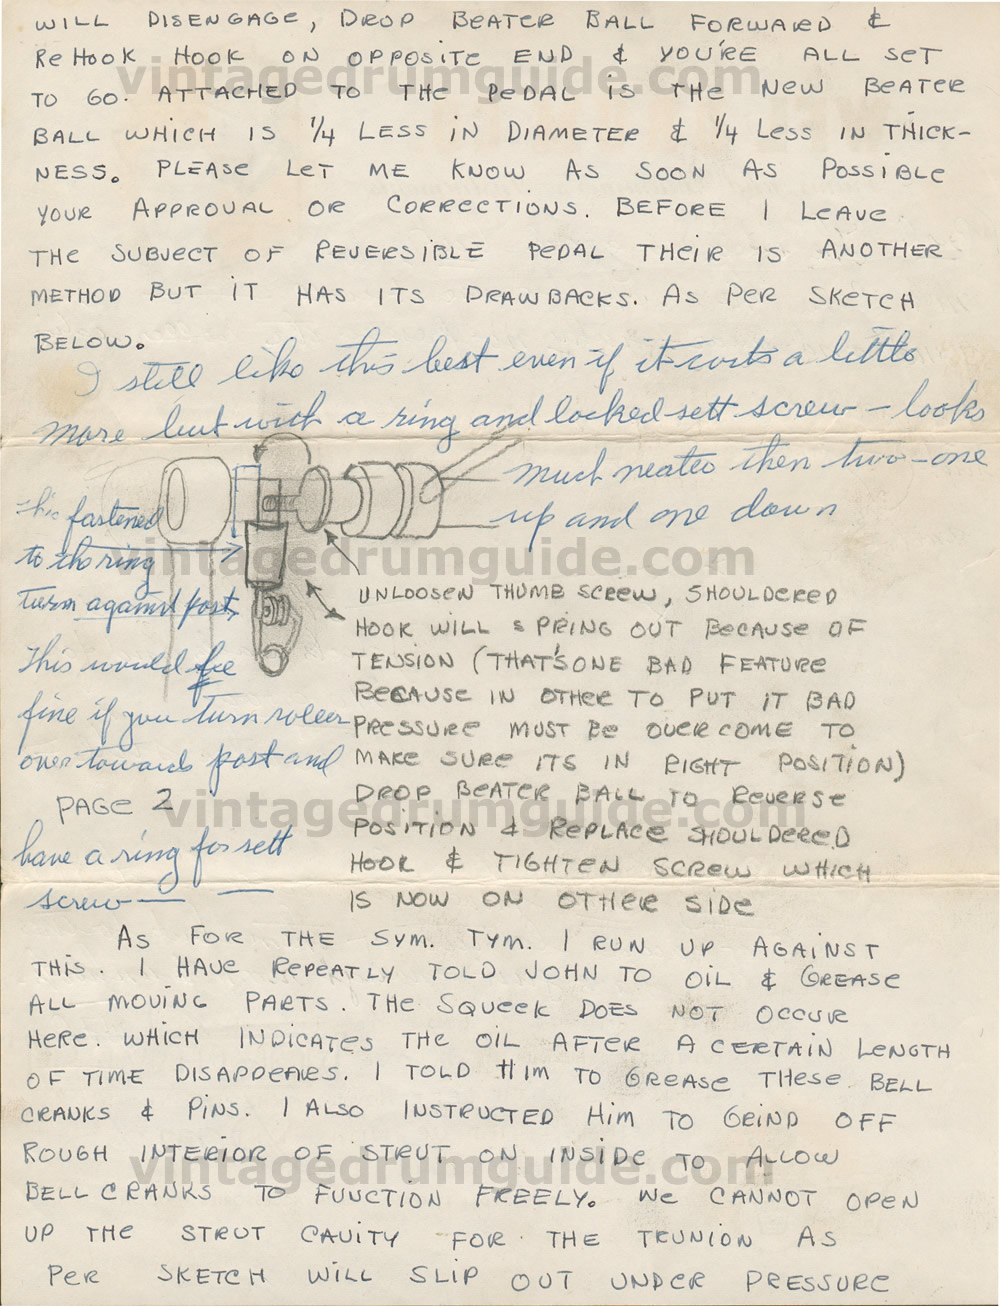 WILL DISENGAGE, DROP BEATER BALL FORWARD &
REHOOK HOOK ON OPPOSITE END & YOU'RE ALL SET
TO GO. ATTACHED TO THE PEDAL IS THE NEW BEATER
BALL WHICH IS 1/4 LESS IN DIAMETER & 1/4 LESS IN THICK-
NESS. PLEASE LET ME KNOW AS SOON AS POSSIBLE
YOUR APPROVAL OR CORRECTIONS. BEFORE I LEAVE
THE SUBJECT OF REVERSIBLE PEDAL THEIR IS ANOTHER
METHOD BUT IT HAS ITS DRAWBACKS. AS PER SKETCH
BELOW.
I still like this best even if it costs a little
more but with a ring and locked sett screw - looks
much neater then two - one
up and one down
This fastened
to the ring
turn against post,
This would be
fine if you turn roller
over towards post and
PAGE 2
have a ring for sett
screw —
UNLOOSEN THUMB SCREW, SHOULDERED
HOOK WILL SPRING OUT BECAUSE OF
TENSION (THAT'S ONE BAD FEATURE
BECAUSE IN OTHER TO PUT IT BAD
PRESSURE MUST BE OVERCOME TO
MAKE SURE ITS IN RIGHT POSITION)
DROP BEATER BALL TO REVERSE
POSITION & REPLACE SHOULDERED
HOOK & TIGHTEN SCREW WHICH
IS NOW ON OTHER SIDE
AS FOR THE SYM. TYM. I RUN UP AGAINST
THIS. I HAVE REPEATLY TOLD JOHN TO OIL & GREASE
ALL MOVING PARTS. THE SQUEEK DOES NOT OCCUR
HERE. WHICH INDICATES THE OIL AFTER A CERTAIN LENGTH
OF TIME DISAPPEARS. I TOLD HIM TO GREASE THESE BELL
CRANKS & PINS. I ALSO INSTRUCTED HIM TO GRIND OFF
ROUGH INTERIOR OF STRUT ON INSIDE TO ALLOW
BELL CRANKS TO FUNCTION FREELY. WE CANNOT OPEN
UP THE STRUT CAVITY FOR THE TRUNION AS
PER SKETCH WILL SLIP OUT UNDER PRESSURE
vintagedrumguide.com
vintagedrumguide.com
vintagedrumguide.com
vintagedrumguide.com